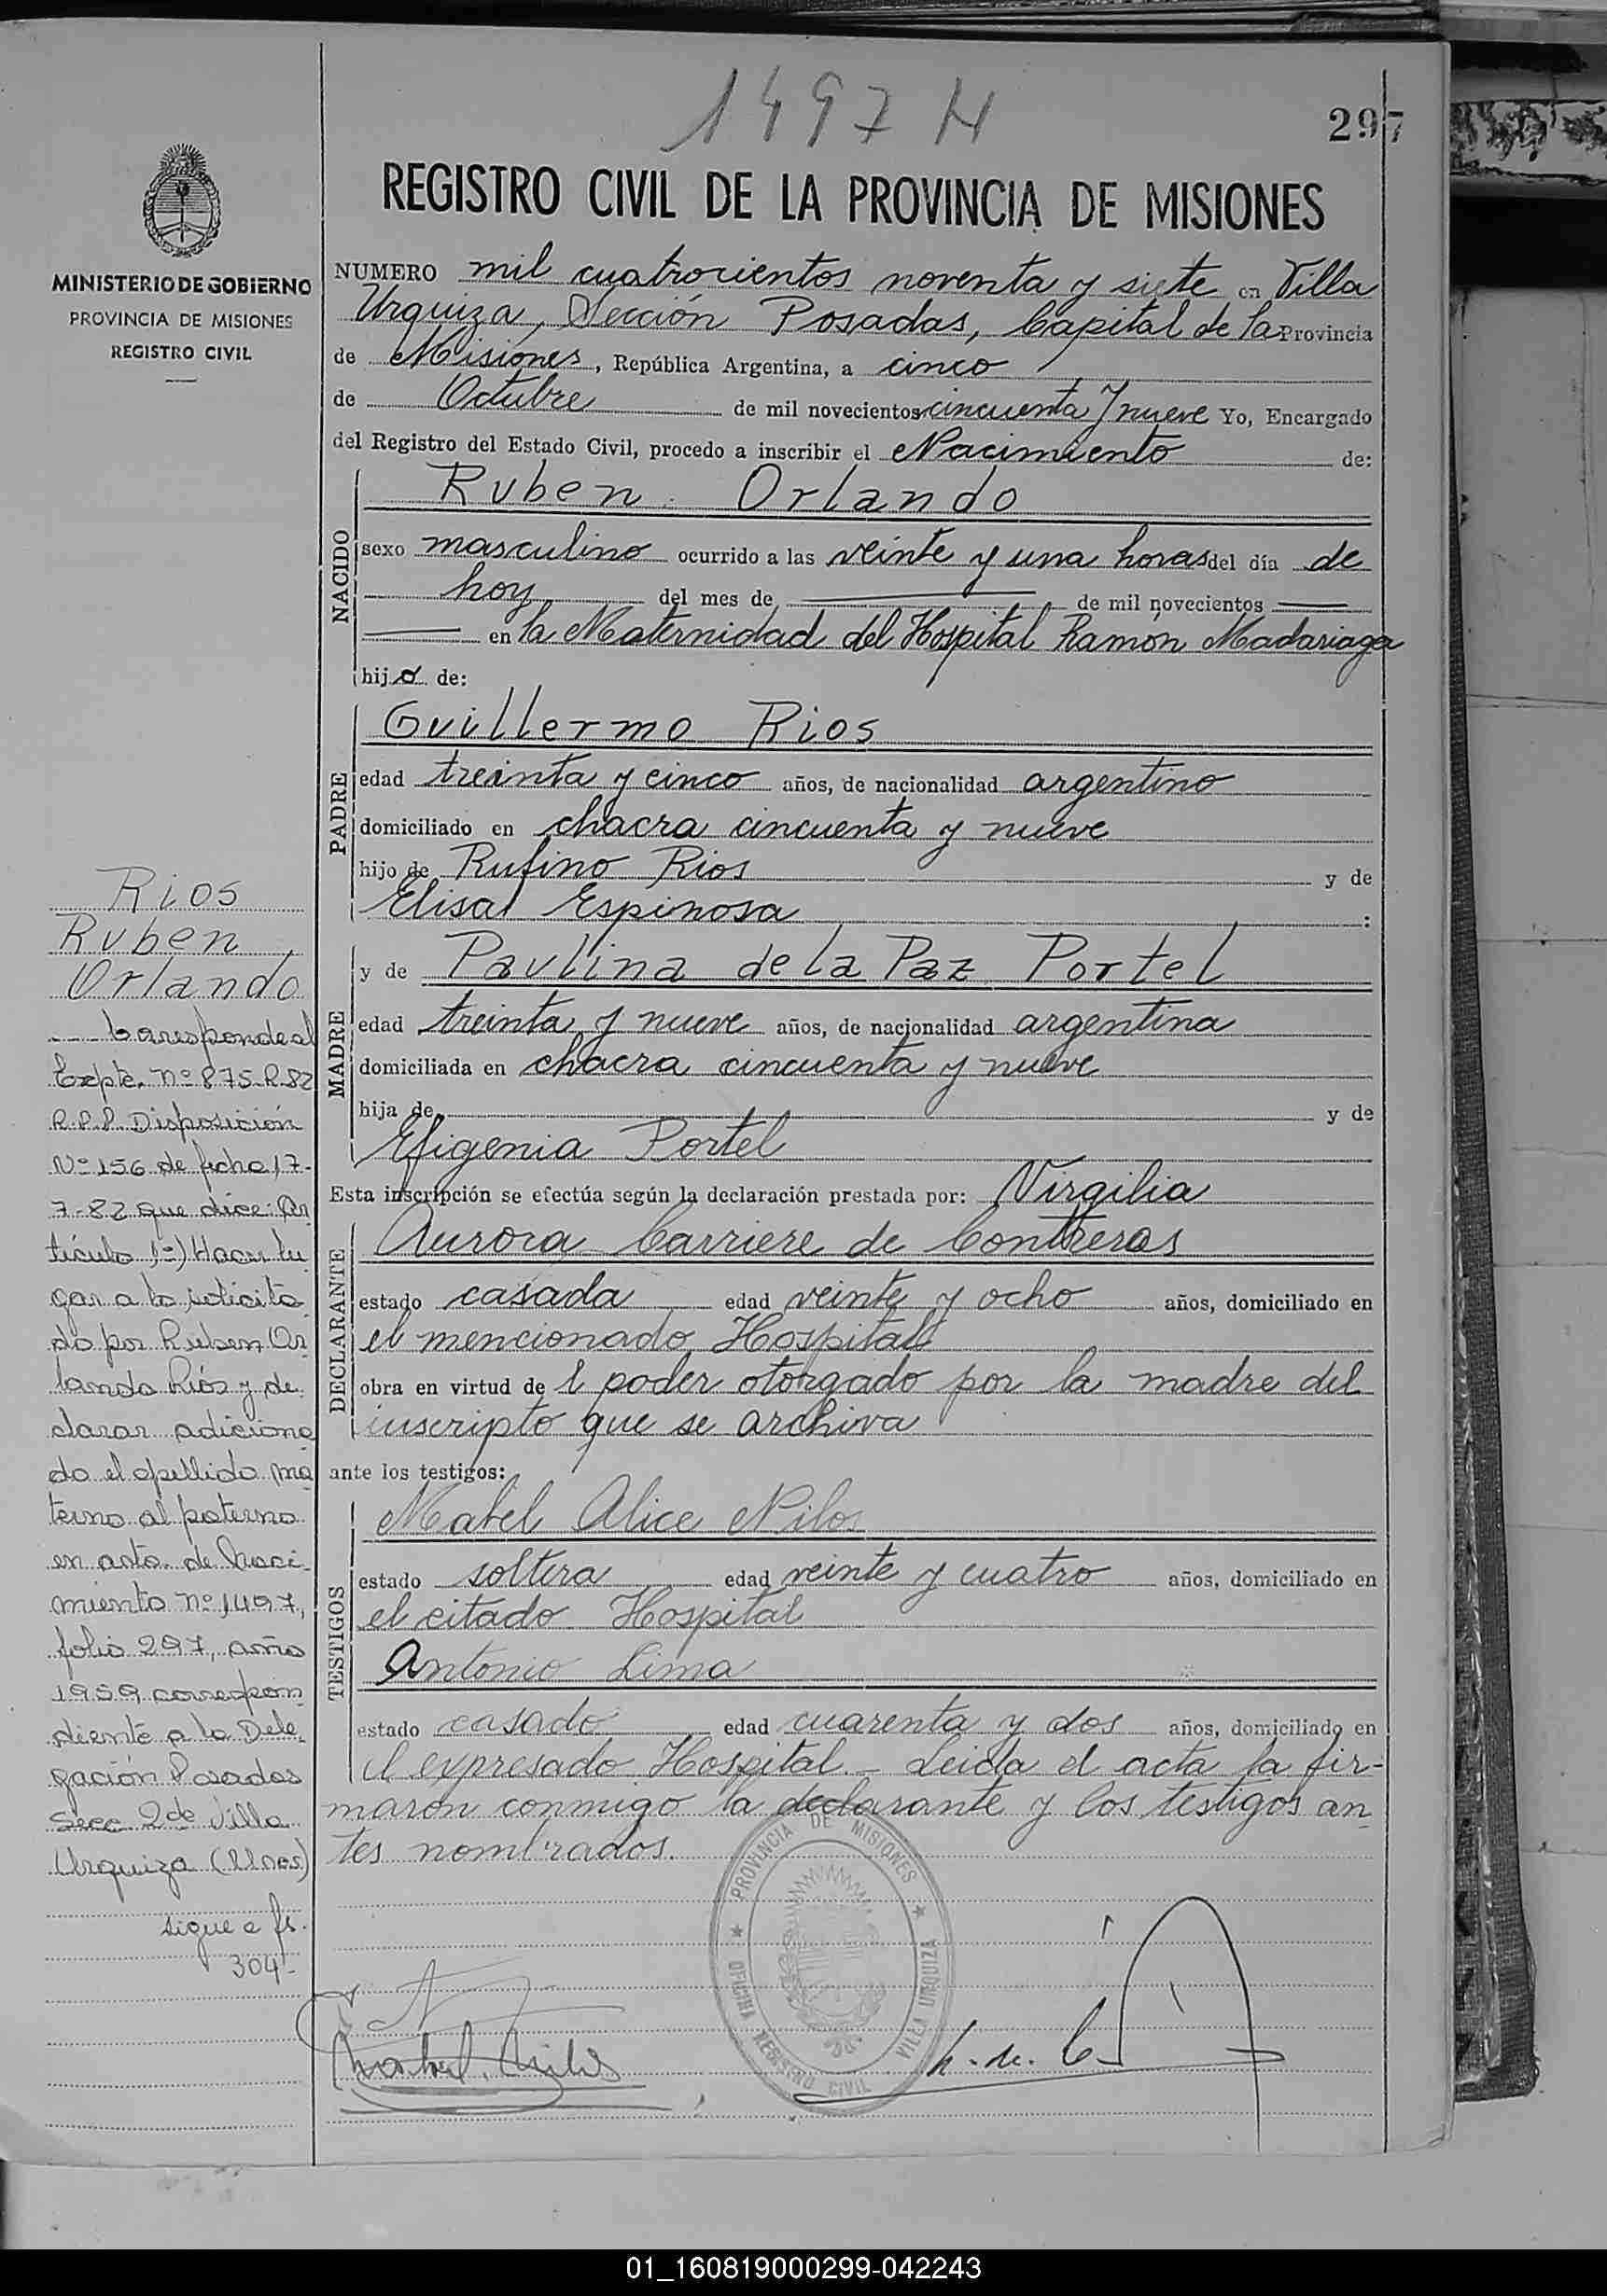 1497 H
297
MINISTERIO DE GOBIERNO
PROVINCIA DE MISIONES
REGISTRO CIVIL
REGISTRO CIVIL DE LA PROVINCIA DE MISIONES
NUMERO mil cuatrocientos noventa y siete en Villa
Urquiza, Sección Posadas, Capital de la Provincia
de Misiones, República Argentina, a cinco
de Octubre de mil novecientos cincuenta y nueve Yo, Encargado
del Registro del Estado Civil, procedo a inscribir el Nacimiento de:
NACIDO
Ruben Orlando
sexo masculino ocurrido a las veinte y una horas del día de
hoy del mes de de mil novecientos
en la Maternidad del Hospital Ramón Madariaga
hijo de:
PADRE
Guillermo Rios
edad treinta y cinco años, de nacionalidad argentino
domiciliado en chacra cincuenta y nueve
hijo de Rufino Rios y de
Elisa Espinosa :
MADRE
y de Paulina de la Paz Portel
edad treinta y nueve años, de nacionalidad argentina
domiciliada en chacra cincuenta y nueve
hija de y de
Efigenia Portel
Esta inscripción se efectúa según la declaración prestada por: Virgilia
DECLARANTE
Aurora Carriere de Contreras
estado casada edad veinte y ocho años, domiciliado en
el mencionado Hospital
obra en virtud de l poder otorgado por la madre del
inscripto que se archiva
ante los testigos:
TESTIGOS
Mabel Alice Nilos
estado soltera edad veinte y cuatro años, domiciliado en
el citado Hospital
Antonio Lima
estado casado edad cuarenta y dos años, domiciliado en
el expresado Hospital.- Leida el acta la fir-
maron conmigo la declarante y los testigos an
tes nombrados.
Rios
Ruben
Orlando
Corresponde al
Expte. Nº 875-R-82
R.P.P. Disposición
Nº 156 de fecha 17-
7-82 que dice: Ar
tículo 1º) Hacer lu
gar a lo solicita
do por Ruben Or
lando Riós y de
clarar adiciona
do el apellido ma
terno al paterno
en acta de Naci
miento nº 1497,
folio 297, año
1959 correspon
diente a la Dele
gación Posadas
Secc 2da Villa
Urquiza (Mnes)
sigue a fs.
304-
PROVINCIA DE MISIONES
OFICINA REGISTRO CIVIL
VILLA URQUIZA
Mabel Nilos
01_160819000299-042243